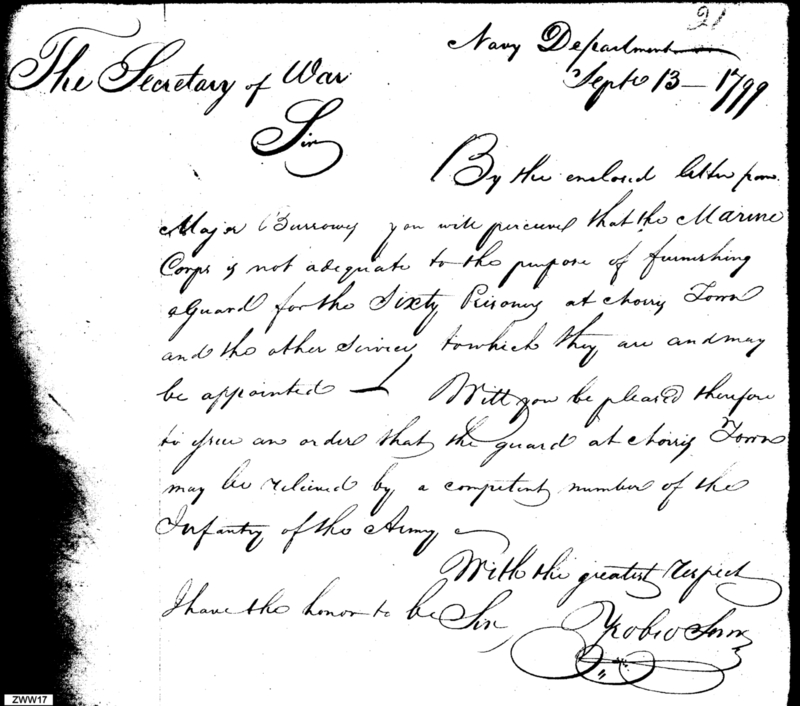 21
Navy Department
The Secretary of War
Sept 13 - 1799
Sir
By the enclosed letter from
Major Burrows you will perceive that the Marine
Corps is not adequate to the purpose of furnishing
a Guard for the Sixty Prisoners at Norris Town
and the other Services to which they are and may
be appointed — Will you be pleased therefore
to give an order that the guard at Norris Town
may be relieved by a competent number of the
Infantry of the Army
With the greatest respect
I have the honor to be Sir
ZWW17